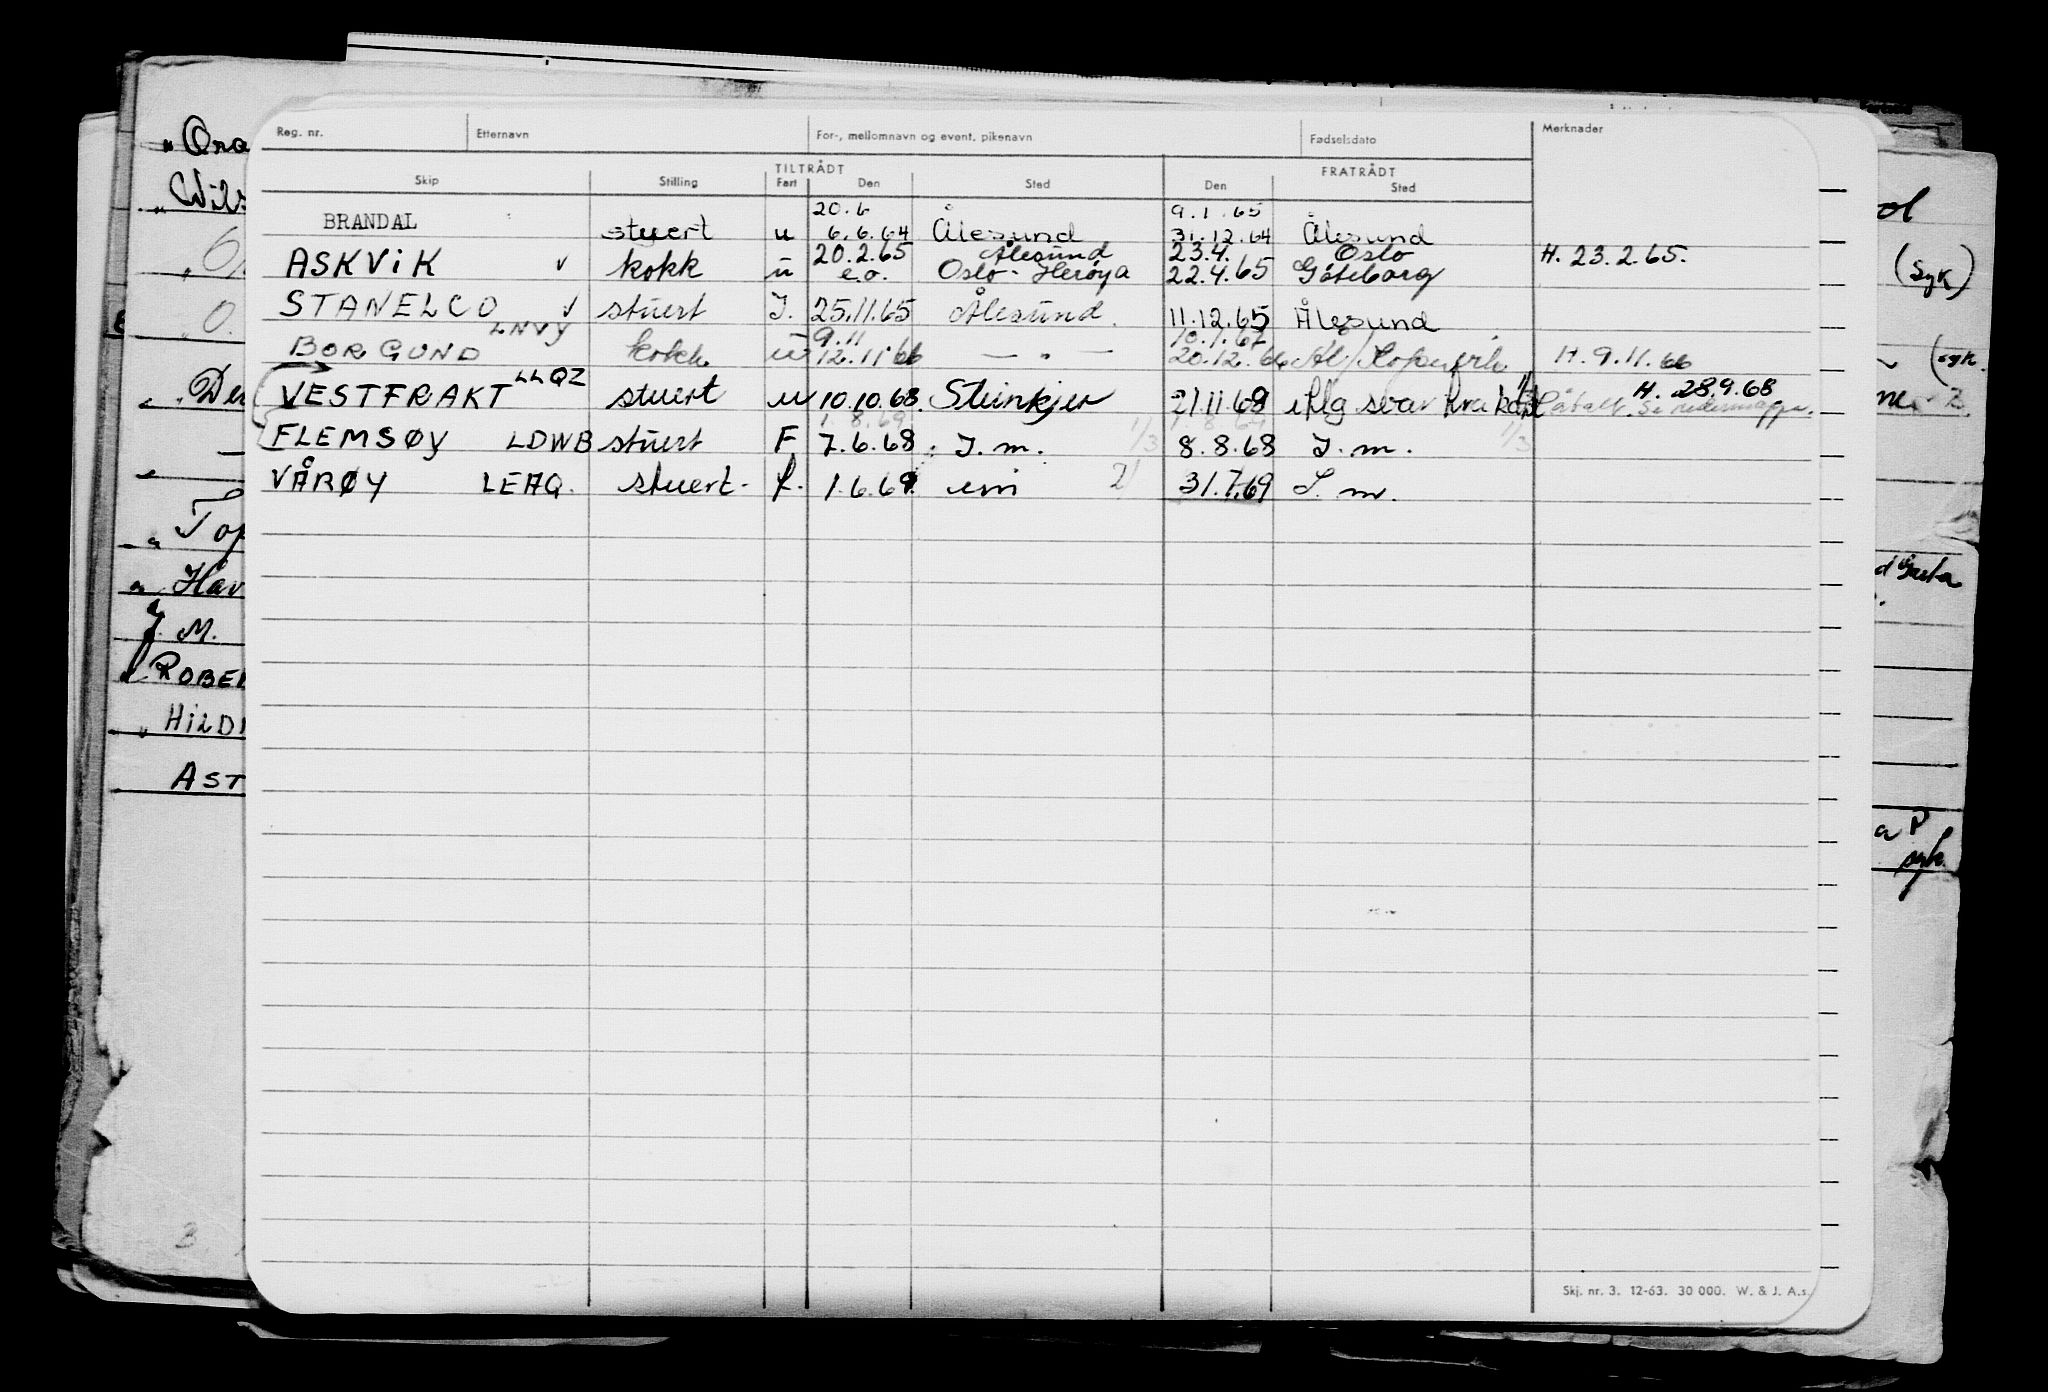 Reg. nr. Etternavn For-, mellomnavn og event. pikenavn Fødselsdato Merknader
TILTRÅDT FRATRÅDT
Skip Stilling Fart Den Sted Den Sted
20.6 9.1.65
BRANDAL stuert u 6.6.64 Ålesund 31.12.64 Ålesund
20.2.65 Ålesund 23.4. Oslo
ASKVIK v kokk u e.o. Oslo-Herøya 22.4.65 Göteborg H. 23.2.65.
STANELCO v stuert I. 25.11.65 Ålesund. 11.12.65 Ålesund
LNVY 9.11 10.1.67
BORGUND kokk u 12.11.66 — " — 20.12.66 H. 9.11.66
VESTFRAKT LLQZ stuert u 10.10.68. Steinkjer 21.11.68 H. 28.9.68
1.8.69
FLEMSØY LDWB stuert F 7.6.68 I.m. 1/3 8.8.68 I.m. 1/3
VÅRØY LEAQ. stuert- f. 1.6.69 um 2/ 31.7.69 I.m.
Skj. nr. 3. 12-63. 30 000. W. & J. A.s.
"Ora
Wils
0.
Der
Top
Hav
J. M.
ROBE
HILD
AST
ol
(Syk)
(syk.
syk.